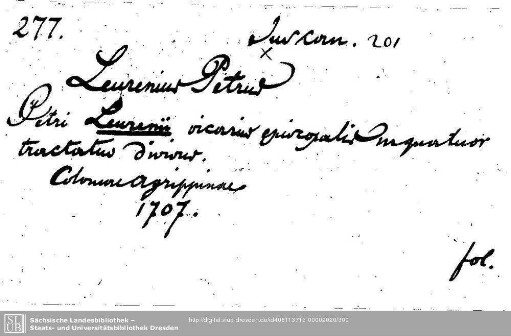 277.
Jus can. 201
Leurenius Petrus
Petri Leurenii vicarius episcopalis in quatuor
tractatus divisus.
Coloniae Agrippinae
1707.
fol.
Sächsische Landesbibliothek –
Staats- und Universitätsbibliothek Dresden